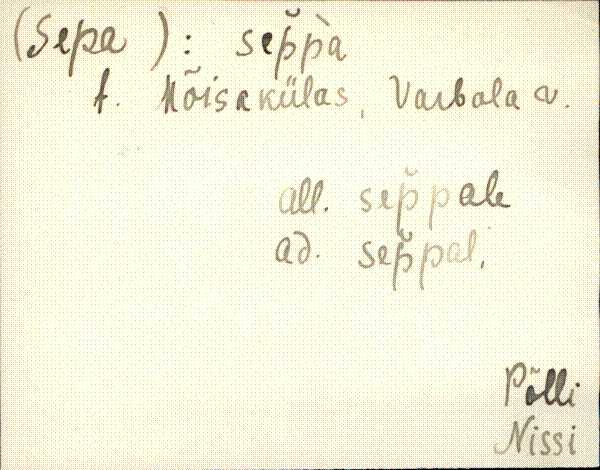 (Sepa ): sep̆p̀a
t. Mõisakülas, Varbola v.
all. sep̆pale
ad. sep̆pal.
Põlli
Nissi